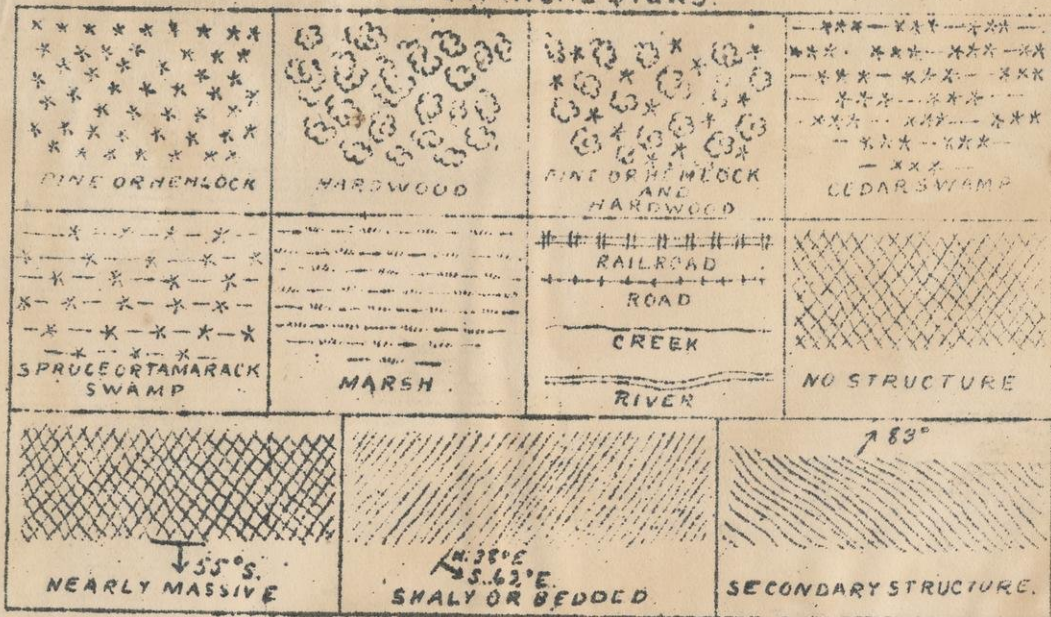 SIGNS.
PINE OR HEMLOCK
HARDWOOD
PINE OR HEMLOCK
AND
HARDWOOD
CEDAR SWAMP
SPRUCE OR TAMARACK
SWAMP
MARSH
RAILROAD
ROAD
CREEK
RIVER
NO STRUCTURE
55°S.
NEARLY MASSIVE
N.38°E
S.62°E.
SHALY OR BEDDED.
83°
SECONDARY STRUCTURE.